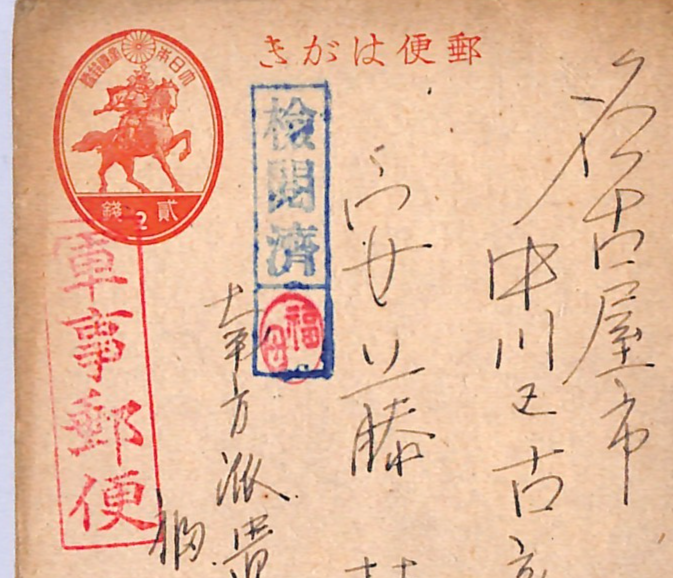 郵便はがき
大日本帝國郵便
貳2錢
檢閲濟
福
軍事郵便
名古屋市
中川区古
安藤
方派遣